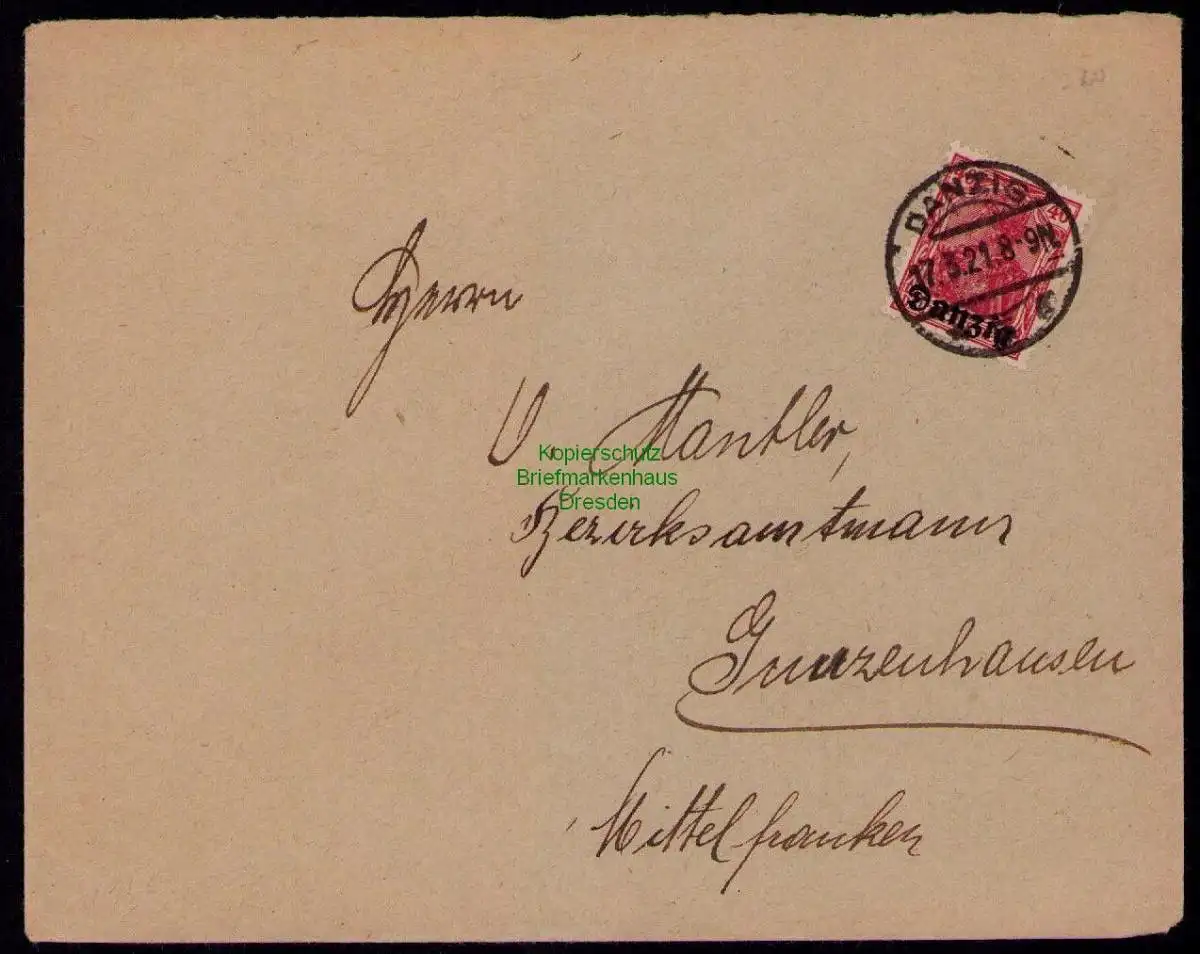 DANZIG
40
17.3.21.8-9N.
Danzig
Herrn
V. Mantler,
Kopierschutz
Briefmarkenhaus
Dresden
Bezirksamtmann
Gunzenhausen
Mittelfranken